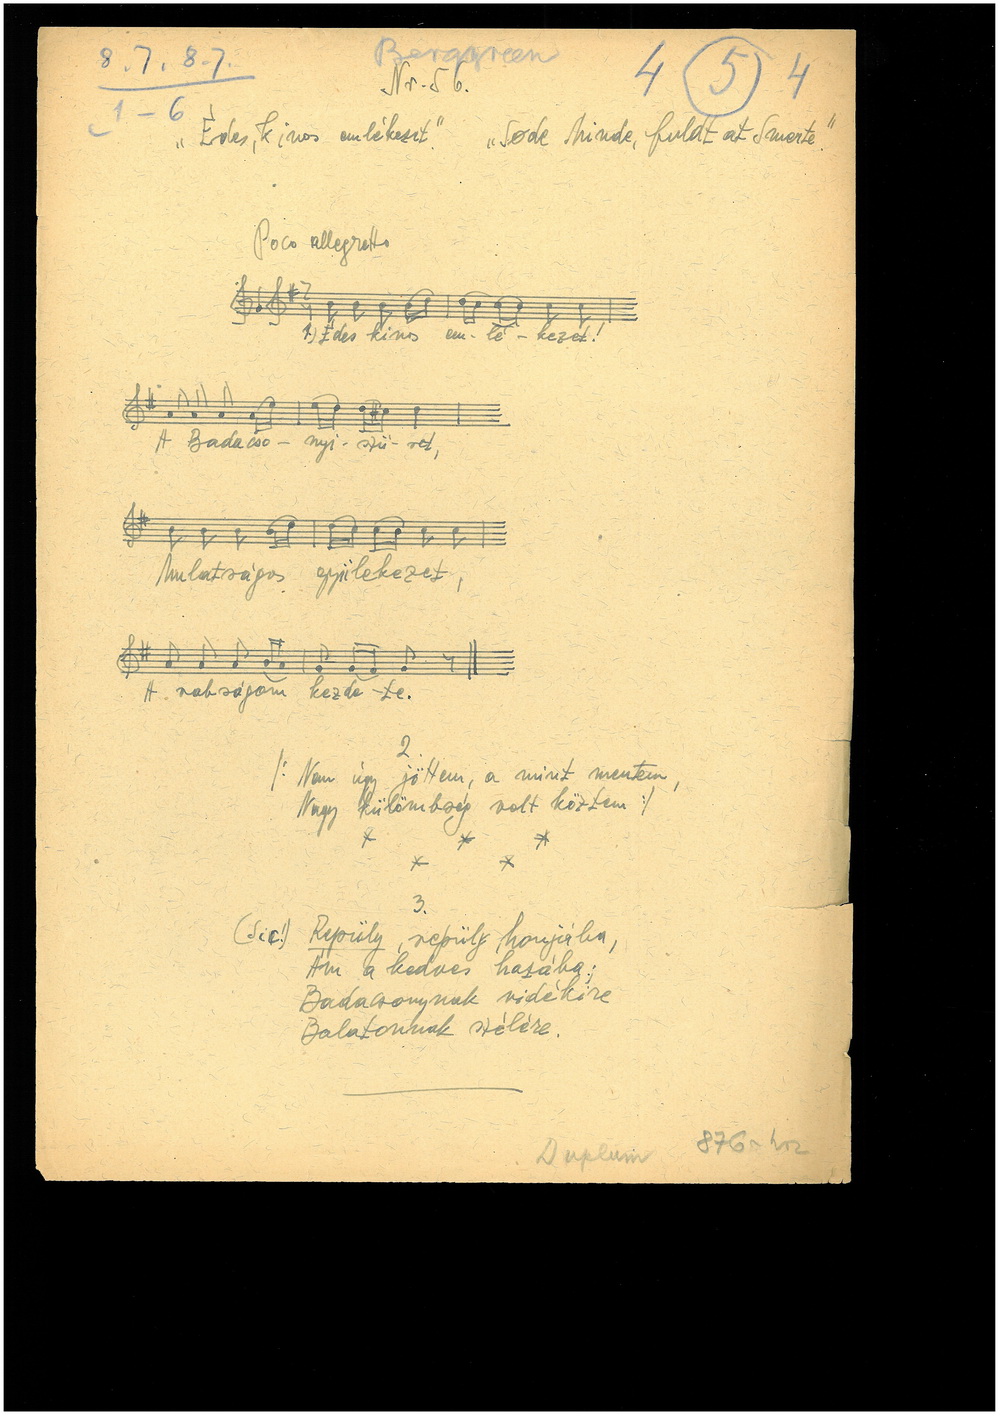 8.7.8.7.
1-6
Berggreen
Nr. 56.
4 5 4
"Édes, kínos emlékezet." "Søde Minde, fuldt at Smerte."
Poco allegretto
1.) Édes kínos em-lé-kezet!
A Badacso-nyi-szü-ret,
Mulatságos gyülekezet,
A rabságom kezde-te.
2.
/: Nem úgy jöttem, a mint mentem,
Nagy külömbség volt köztem :/
* * *
* *
3.
(Sic!) Repüly, repülj honjába,
Am a kedves hazába;
Badacsonynak vidékire
Balatonnak szélére.
Duplum 876-hoz